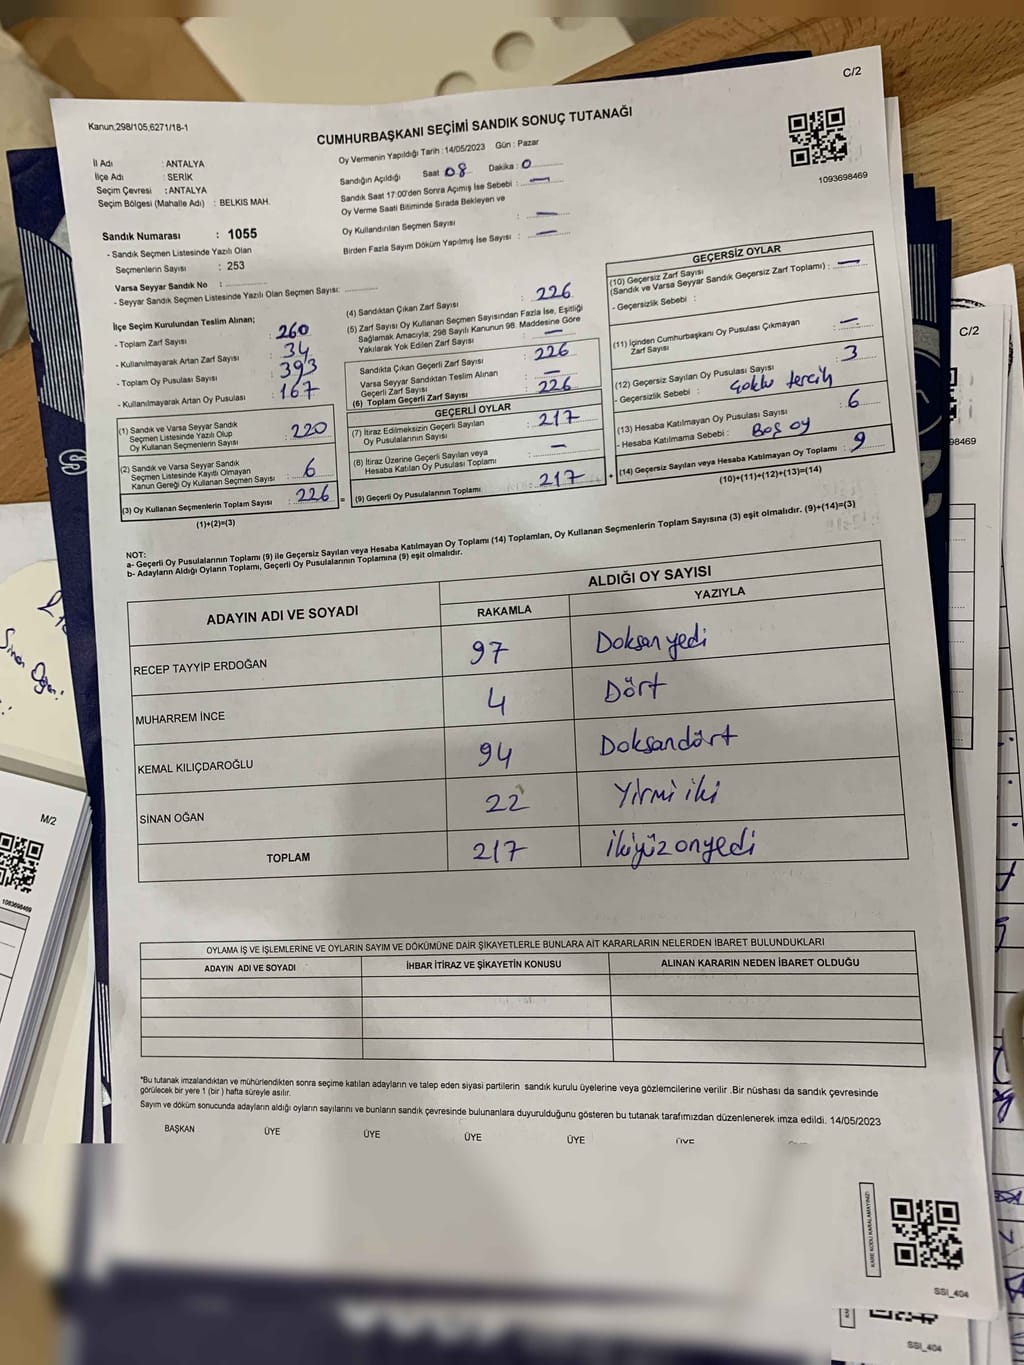 C/2
Kanun,298/105,6271/18-1
CUMHURBAŞKANI SEÇİMİ SANDIK SONUÇ TUTANAĞI
1093698469
İl Adı : ANTALYA
İlçe Adı : SERİK
Seçim Çevresi : ANTALYA
Seçim Bölgesi (Mahalle Adı) : BELKIS MAH.
Oy Vermenin Yapıldığı Tarih : 14/05/2023 Gün : Pazar
Sandığın Açıldığı Saat 08 Dakika : 0
Sandık Saat 17:00'den Sonra Açımış İse Sebebi : —
Oy Verme Saati Bitiminde Sırada Bekleyen ve
Oy Kullandırılan Seçmen Sayısı : —
Birden Fazla Sayım Döküm Yapılmış İse Sayısı : —
Sandık Numarası : 1055
- Sandık Seçmen Listesinde Yazılı Olan
Seçmenlerin Sayısı : 253
Varsa Seyyar Sandık No :
- Seyyar Sandık Seçmen Listesinde Yazılı Olan Seçmen Sayısı:
İlçe Seçim Kurulundan Teslim Alınan;
- Toplam Zarf Sayısı : 260
- Kullanılmayarak Artan Zarf Sayısı : 34
- Toplam Oy Pusulası Sayısı : 393
- Kullanılmayarak Artan Oy Pusulası : 167
(1) Sandık ve Varsa Seyyar Sandık
Seçmen Listesinde Yazılı Olup
Oy Kullanan Seçmenlerin Sayısı : 220
(2) Sandık ve Varsa Seyyar Sandık
Seçmen Listesinde Kayıtlı Olmayan
Kanun Gereği Oy Kullanan Seçmen Sayısı : 6
(3) Oy Kullanan Seçmenlerin Toplam Sayısı : 226 =
(1)+(2)=(3)
(4) Sandıktan Çıkan Zarf Sayısı : 226
(5) Zarf Sayısı Oy Kullanan Seçmen Sayısından Fazla İse, Eşitliği
Sağlamak Amacıyla; 298 Sayılı Kanunun 98. Maddesine Göre
Yakılarak Yok Edilen Zarf Sayısı : —
Sandıkta Çıkan Geçerli Zarf Sayısı : 226
Varsa Seyyar Sandıktan Teslim Alınan
Geçerli Zarf Sayısı : —
(6) Toplam Geçerli Zarf Sayısı : 226
GEÇERLİ OYLAR
(7) İtiraz Edilmeksizin Geçerli Sayılan
Oy Pusulalarının Sayısı : 217
(8) İtiraz Üzerine Geçerli Sayılan veya
Hesaba Katılan Oy Pusulası Toplamı : —
(9) Geçerli Oy Pusulalarının Toplamı : 217 +
GEÇERSİZ OYLAR
(10) Geçersiz Zarf Sayısı
(Sandık ve Varsa Seyyar Sandık Geçersiz Zarf Toplamı) : —
- Geçersizlik Sebebi :
(11) İçinden Cumhurbaşkanı Oy Pusulası Çıkmayan
Zarf Sayısı : —
(12) Geçersiz Sayılan Oy Pusulası Sayısı : 3
- Geçersizlik Sebebi : Çoklu tercih
(13) Hesaba Katılmayan Oy Pusulası Sayısı : 6
- Hesaba Katılmama Sebebi : Boş oy
(14) Geçersiz Sayılan veya Hesaba Katılmayan Oy Toplamı : 9
(10)+(11)+(12)+(13)=(14)
NOT:
a- Geçerli Oy Pusulalarının Toplamı (9) ile Geçersiz Sayılan veya Hesaba Katılmayan Oy Toplamı (14) Toplamları, Oy Kullanan Seçmenlerin Toplam Sayısına (3) eşit olmalıdır. (9)+(14)=(3)
b- Adayların Aldığı Oyların Toplamı, Geçerli Oy Pusulalarının Toplamına (9) eşit olmalıdır.
ADAYIN ADI VE SOYADI
ALDIĞI OY SAYISI
RAKAMLA YAZIYLA
RECEP TAYYİP ERDOĞAN 97 Doksan yedi
MUHARREM İNCE 4 Dört
KEMAL KILIÇDAROĞLU 94 Doksandört
SİNAN OĞAN 22 Yirmi iki
TOPLAM 217 ikiyüz onyedi
OYLAMA İŞ VE İŞLEMLERİNE VE OYLARIN SAYIM VE DÖKÜMÜNE DAİR ŞİKAYETLERLE BUNLARA AİT KARARLARIN NELERDEN İBARET BULUNDUKLARI
ADAYIN ADI VE SOYADI İHBAR İTİRAZ VE ŞİKAYETİN KONUSU ALINAN KARARIN NEDEN İBARET OLDUĞU
*Bu tutanak imzalandıktan ve mühürlendikten sonra seçime katılan adayların ve talep eden siyasi partilerin sandık kurulu üyelerine veya gözlemcilerine verilir .Bir nüshası da sandık çevresinde
görülecek bir yere 1 (bir ) hafta süreyle asılır.
Sayım ve döküm sonucunda adayların aldığı oyların sayılarını ve bunların sandık çevresinde bulunanlara duyurulduğunu gösteren bu tutanak tarafımızdan düzenlenerek imza edildi. 14/05/2023
BAŞKAN ÜYE ÜYE ÜYE ÜYE ÜYE
KARE KODU KARALAMAYINIZ!
SSI_404
SSI_404
C/2
98469
M/2
1093698469
Sinan Oğan